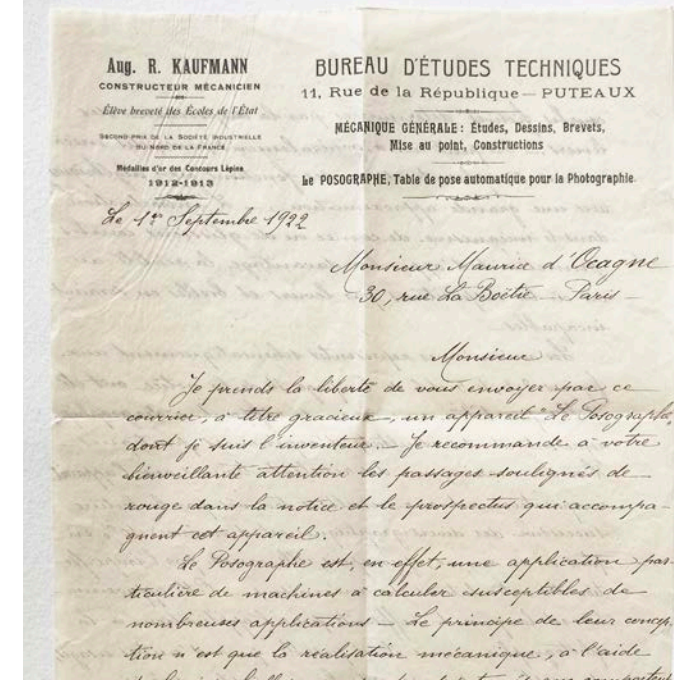 Aug. R. KAUFMANN
CONSTRUCTEUR MÉCANICIEN
Élève breveté des Écoles de l'État
SECOND PRIX DE LA SOCIÉTÉ INDUSTRIELLE
DU NORD DE LA FRANCE
Médailles d'or des Concours Lépine
1912-1913
BUREAU D'ÉTUDES TECHNIQUES
11, Rue de la République — PUTEAUX
MÉCANIQUE GÉNÉRALE : Études, Dessins, Brevets,
Mise au point, Constructions
Le POSOGRAPHE, Table de pose automatique pour la Photographie
Le 1er Septembre 1922
Monsieur Maurice d'Ocagne
30, rue La Boëtie Paris —
Monsieur
Je prends la liberté de vous envoyer par ce
courrier, à titre gracieux, un appareil "Le Posographe,
dont je suis l'inventeur. — Je recommande à votre
bienveillante attention les passages soulignés de
rouge dans la notice et le prospectus qui accompa-
gnent cet appareil.
Le Posographe est, en effet, une application par-
ticulière de machines à calculer susceptibles de
nombreuses applications — Le principe de leur concep-
tion n'est que la réalisation mécanique, à l'aide